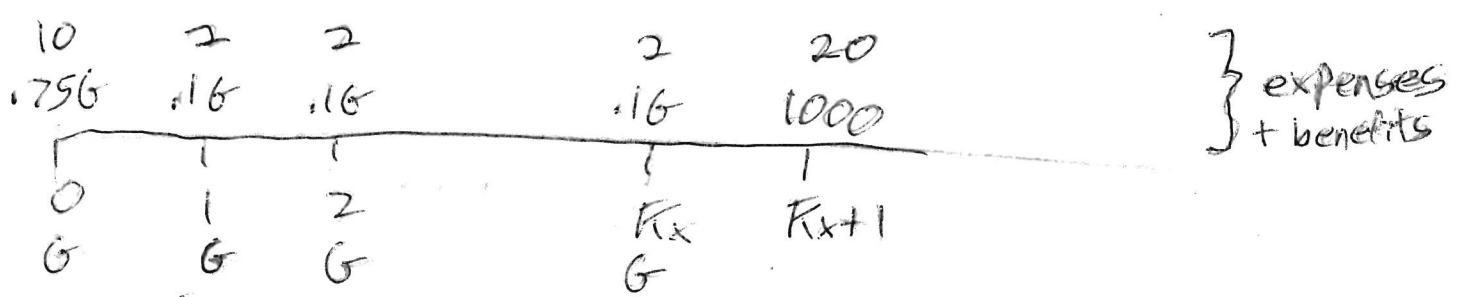 10 2 2 2 20
.75G .1G .1G .1G 1000
} expenses + benefits
0 1 2 Kx Kx+1
G G G G